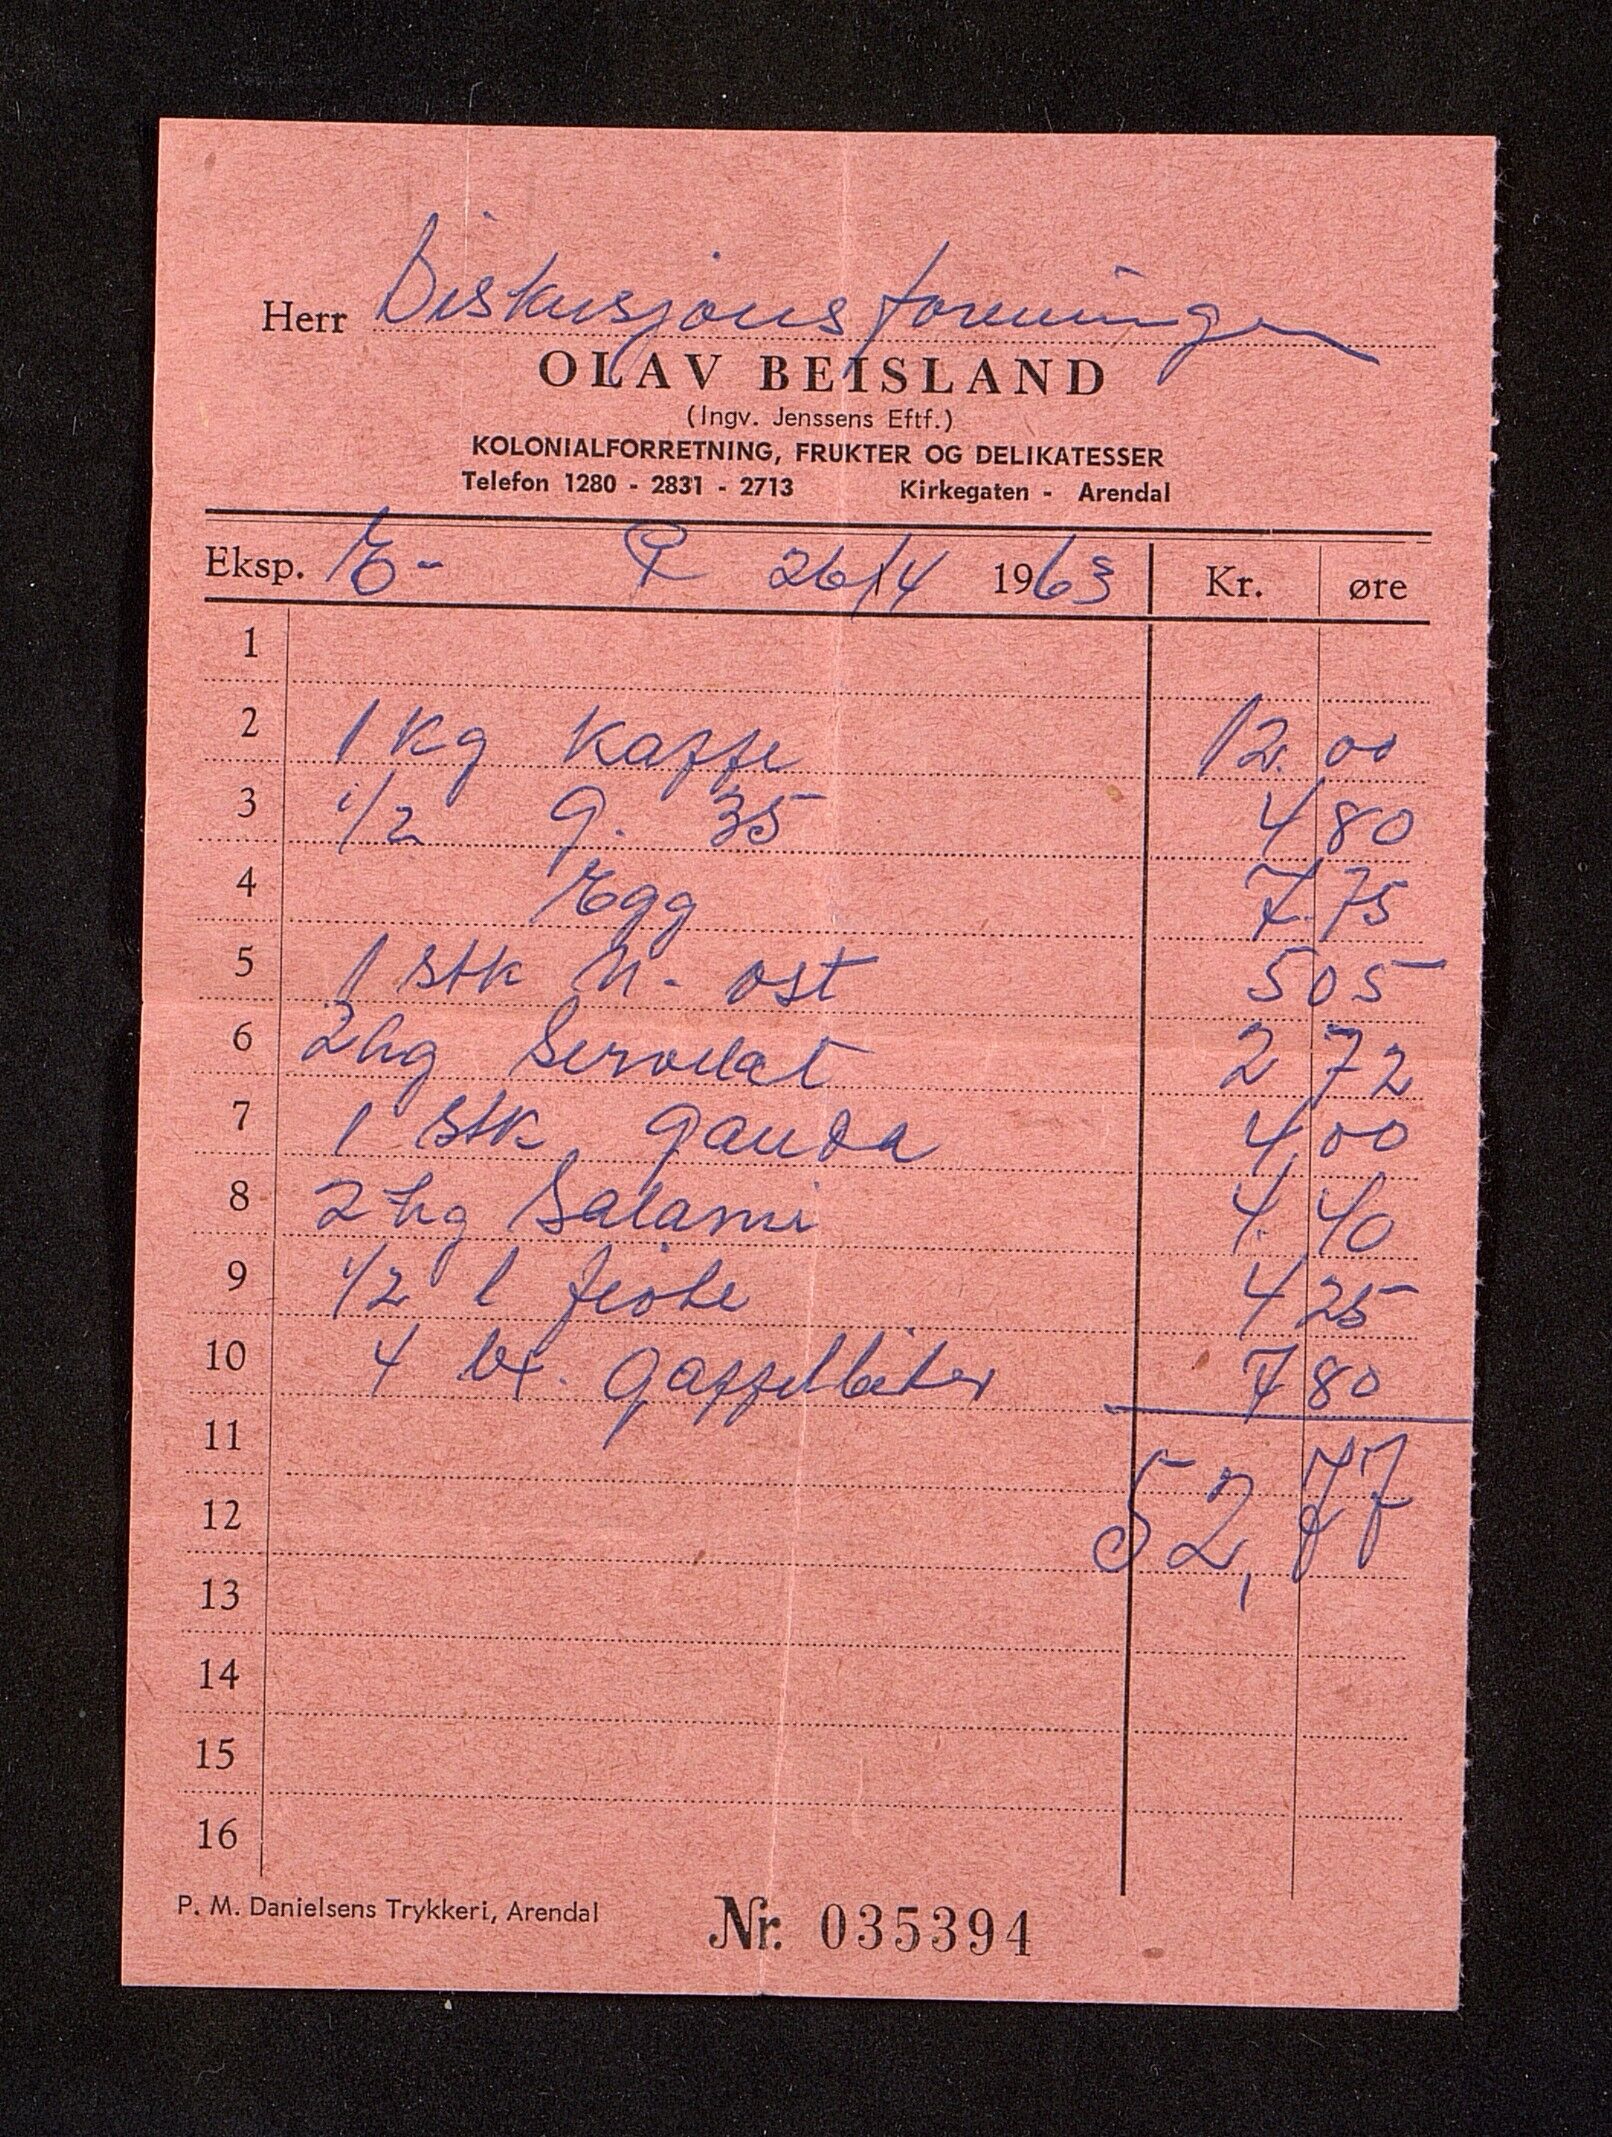 Herr Diskusjonsforeningen
OLAV BEISLAND
(Ingv. Jenssens Eftf.)
KOLONIALFORRETNING, FRUKTER OG DELIKATESSER
Telefon 1280 - 2831 - 2713 Kirkegaten - Arendal
Eksp. E- 26/4 1963 Kr. øre
1
2 1 kg kaffe 12.00
3 1/2 g. 35 4 80
4 Egg 7.75
5 1 stk N-ost 5 05
6 2 hg Servelat 2 72
7 1 stk gauda 4 00
8 2 hg Salami 4. 40
9 1/2 l fløte 4 25
10 4 bx. gaffelbiter 7 80
11
12 52,77
13
14
15
16
P. M. Danielsens Trykkeri, Arendal Nr. 035394